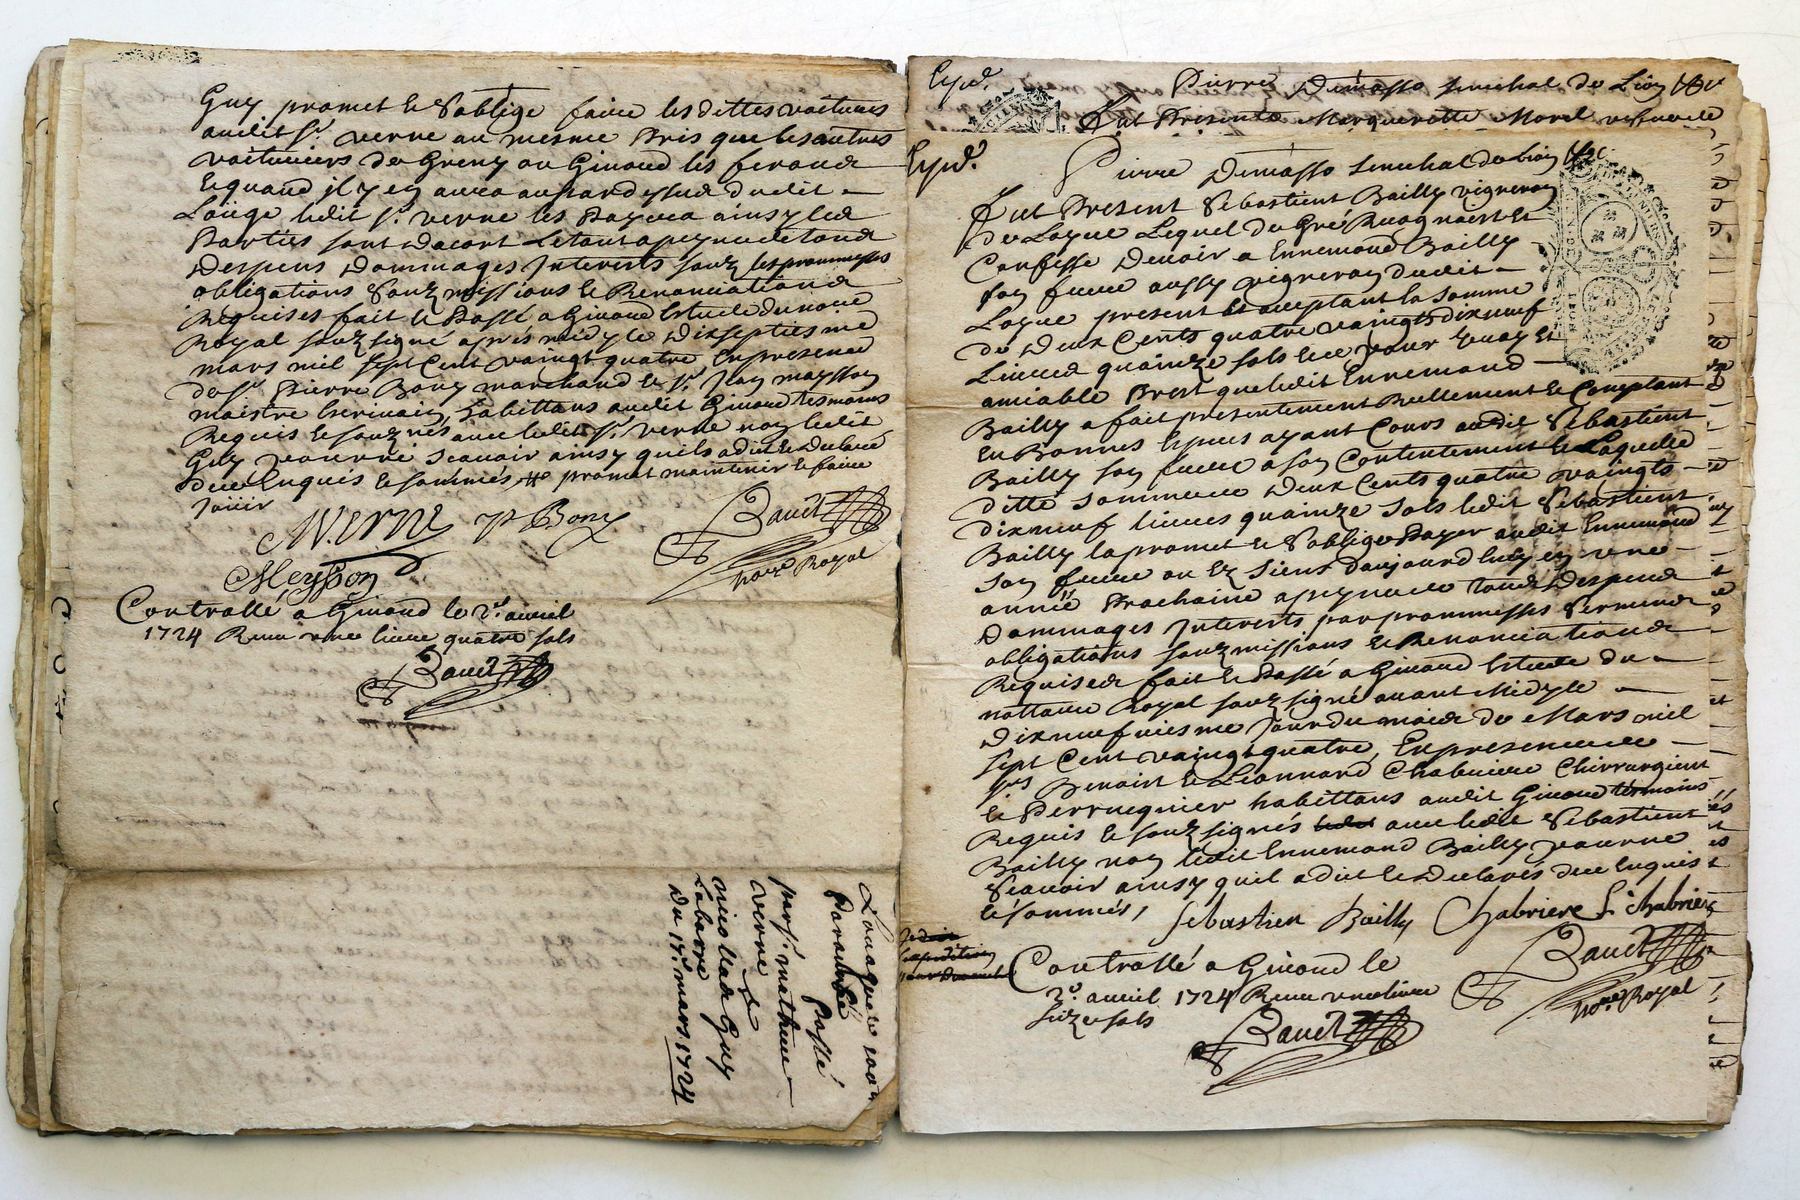 Guy promet et s'oblige faire les dittes voitures
audit Sr. verne au mesme pris que les autres
voituriers de Greny ou Givord les feront
et quand il y en aura au pardessus dudit
Loüage ledit Sr. verne les payera ainsy les
Parties sont dacort le tout a peyne de tous
despens dommages Interests souz les promesses
obligations souzmissions et Renonciations
Requises fait et Passé a Givord Estude du no.re
Royal souz signé aprés midy le dixseptiesme
mars mil sept Cent vaingt quatre En presence
de Sr. Pierre Bony marchand et Sr. Jean maysson
maistre Escrivain habittans audit Givord tesmoins
Requis et souz.nés avec ledit Sr. verne non ledit
Guy pour ne scavoir ainsy quils a dit et declaré
de ce Enquis et sommés, promet maintenir et faire
Joüir
M. verne P Bony
Bauet
no.re Royal
Meysson
Controllé a Givord le 2.e avril
1724 Receu une livre quatre sols
Bauet
Loüage
Passé
par Sr. mathieu
verne
a
nicollas Guy
Labarre
du 17.e mars 1724
Expd.
Pierre Demasso senechal de Lion &c
Fut Presente Margueritte Morel vefve de
Expd.
Pierre Demasso senechal de Lion &c.
Fut Present Sebastient Bailly vigneron
de Loyre Lequel de Gré Recognoist et
Confesse devoir a Ennemond Bailly
son frere aussy vigneron dudit
Loyre present et acceptant la somme
de deux Cents quatre vaingts dixneuf
Livres quainze sols et ce pour vray et
amiable Prest que ledit Ennemond
Bailly a fait presentement Reellement et Comptant
En Bonnes Especes ayant Cours audit Sebastient
Bailly son frere a son Contentement et Laquelle
ditte somme de deux Cents quatre vaingts
dixneuf livres quainze sols ledit Sebastient
Bailly la promet et s'oblige Payer audit Ennemond
son frere ou Ez siens daujourdhuy en une
année Prochaine a peyne de tous despens
dommages Interests par promesses serments
obligations souzmissions et Renonciations
Requises fait et Passé a Givord Estude du
nottaire Royal souz signé avant Midy le
dixneufviesme Jour du mois de Mars mil
sept Cent vaingt quatre, En presence de
Srs Benoist et Leonnard Chabriere Chirrurgient
et Perruequier habittans audit Givord tesmoins
Requis et souz signés avec ledit Sebastient
Bailly non ledit Ennemond Bailly pour ne
scavoir ainsy quil a dit et declarés de ce Enquis
et sommés,
Sebastien Bailly Chabriere L chabriere
Bauet
no.re Royal
Controllé a Givord le
2.e avril 1724 Receu une livre
seize sols
Bauet